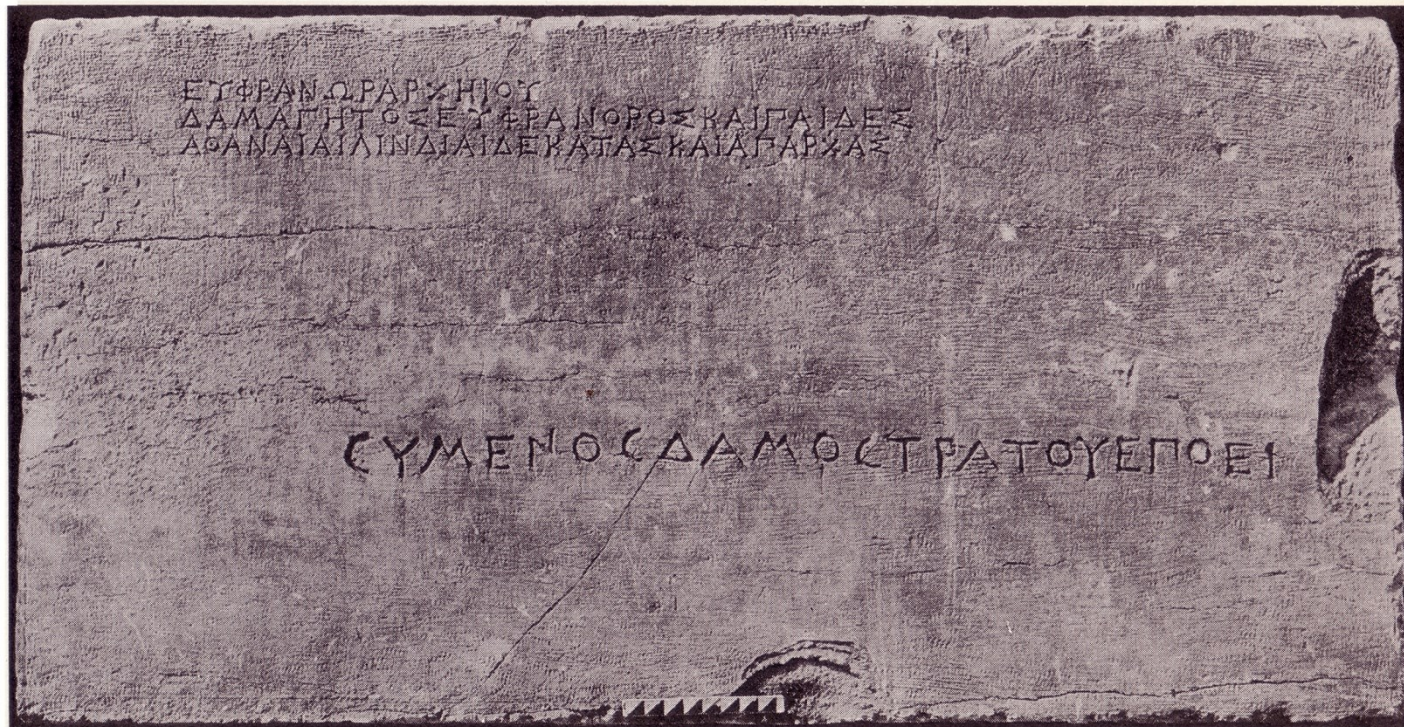 ΕΥΦΡΑΝΩΡΑΡΧΗΙΟΥ
ΔΑΜΑΓΗΤΟΣΕΥΦΡΑΝΟΡΟΣΚΑΙΠΑΙΔΕΣ
ΑΘΑΝΑΙΑΙΛΙΝΔΙΑΙΔΕΚΑΤΑΣΚΑΙΑΠΑΡΧΑΣ
ϹΥΜΕΝΟϹΔΑΜΟϹΤΡΑΤΟΥΕΠΟΕΙ